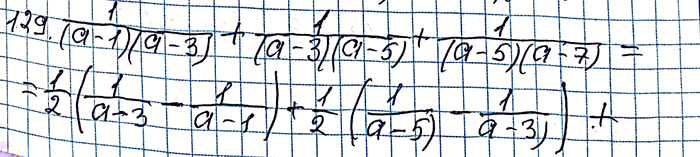 129. 1/((a-1)(a-3)) + 1/((a-3)(a-5)) + 1/((a-5)(a-7)) =
= 1/2 (1/(a-3) - 1/(a-1)) + 1/2 (1/(a-5) - 1/(a-3)) +